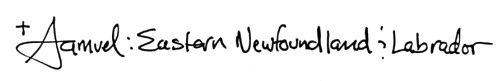 +Samuel: Eastern Newfoundland & Labrador